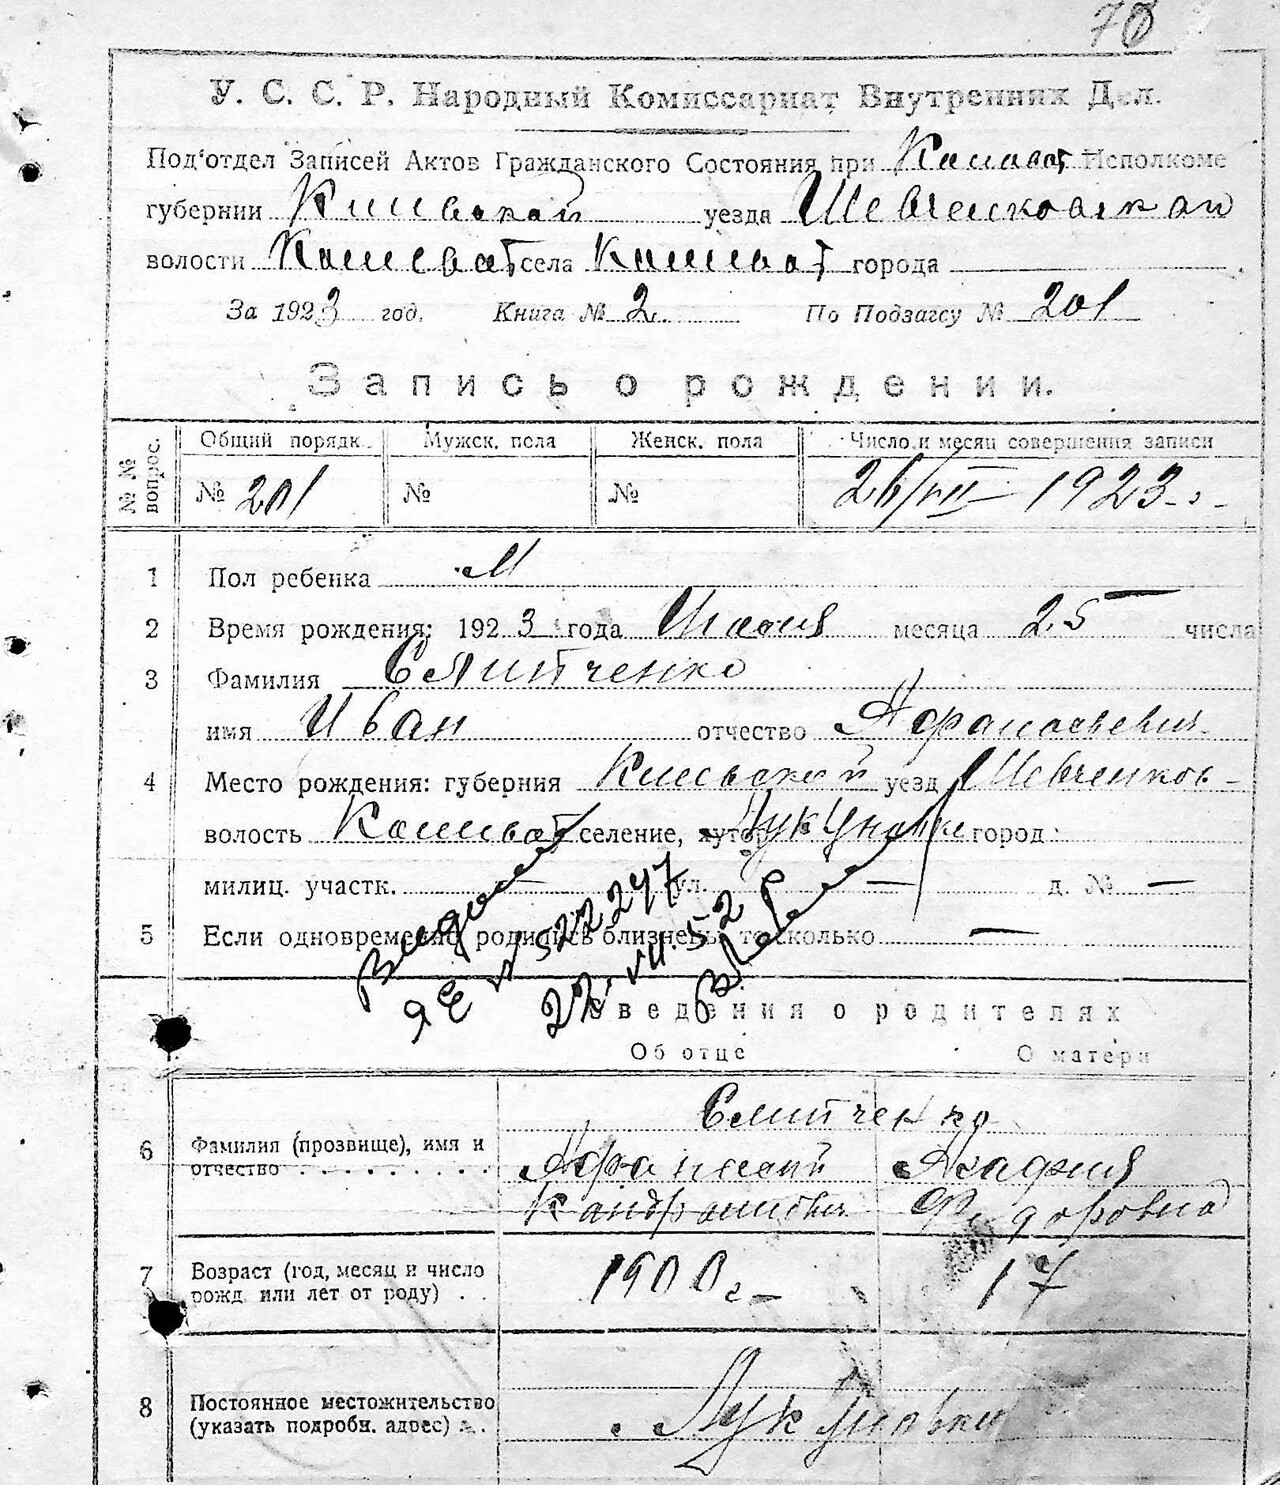 70
У. С. С. Р. Народный Комиссариат Внутренних Дел.
Под'отдел Записей Актов Гражданского Состояния при Исполкоме
губернии Киевской уезда Шевченковской
волости Кошеват села Кошеват города
За 1923 год. Книга № 2 По Подзагсу № 201
Запись о рождении.
№ № вопрос. Общий порядк. Мужск. пола Женск. пола Число и месяц совершения записи
№ 201 № № 26/VII 1923 г.
1 Пол ребенка М
2 Время рождения: 1923 года Июля месяца 25 числа
3 Фамилия Слипченко
имя Иван отчество Афанасьевич
4 Место рождения: губерния Киевской уезд Шевченков-
волость Кошеват селение, хутор город
милиц. участк. — ул. — д. № —
5 Если одновременно родились близнецы, то сколько —
Выдано
ЯЕ № 522247
22.VII.52
Сведения о родителях
Об отце О матери
6 Фамилия (прозвище), имя и отчество Слипченко
Афанасий Агафия
Кондратович Федоровна
7 Возраст (год, месяц и число рожд. или лет от роду) 1900 г. 17
8 Постоянное местожительство (указать подробн. адрес)